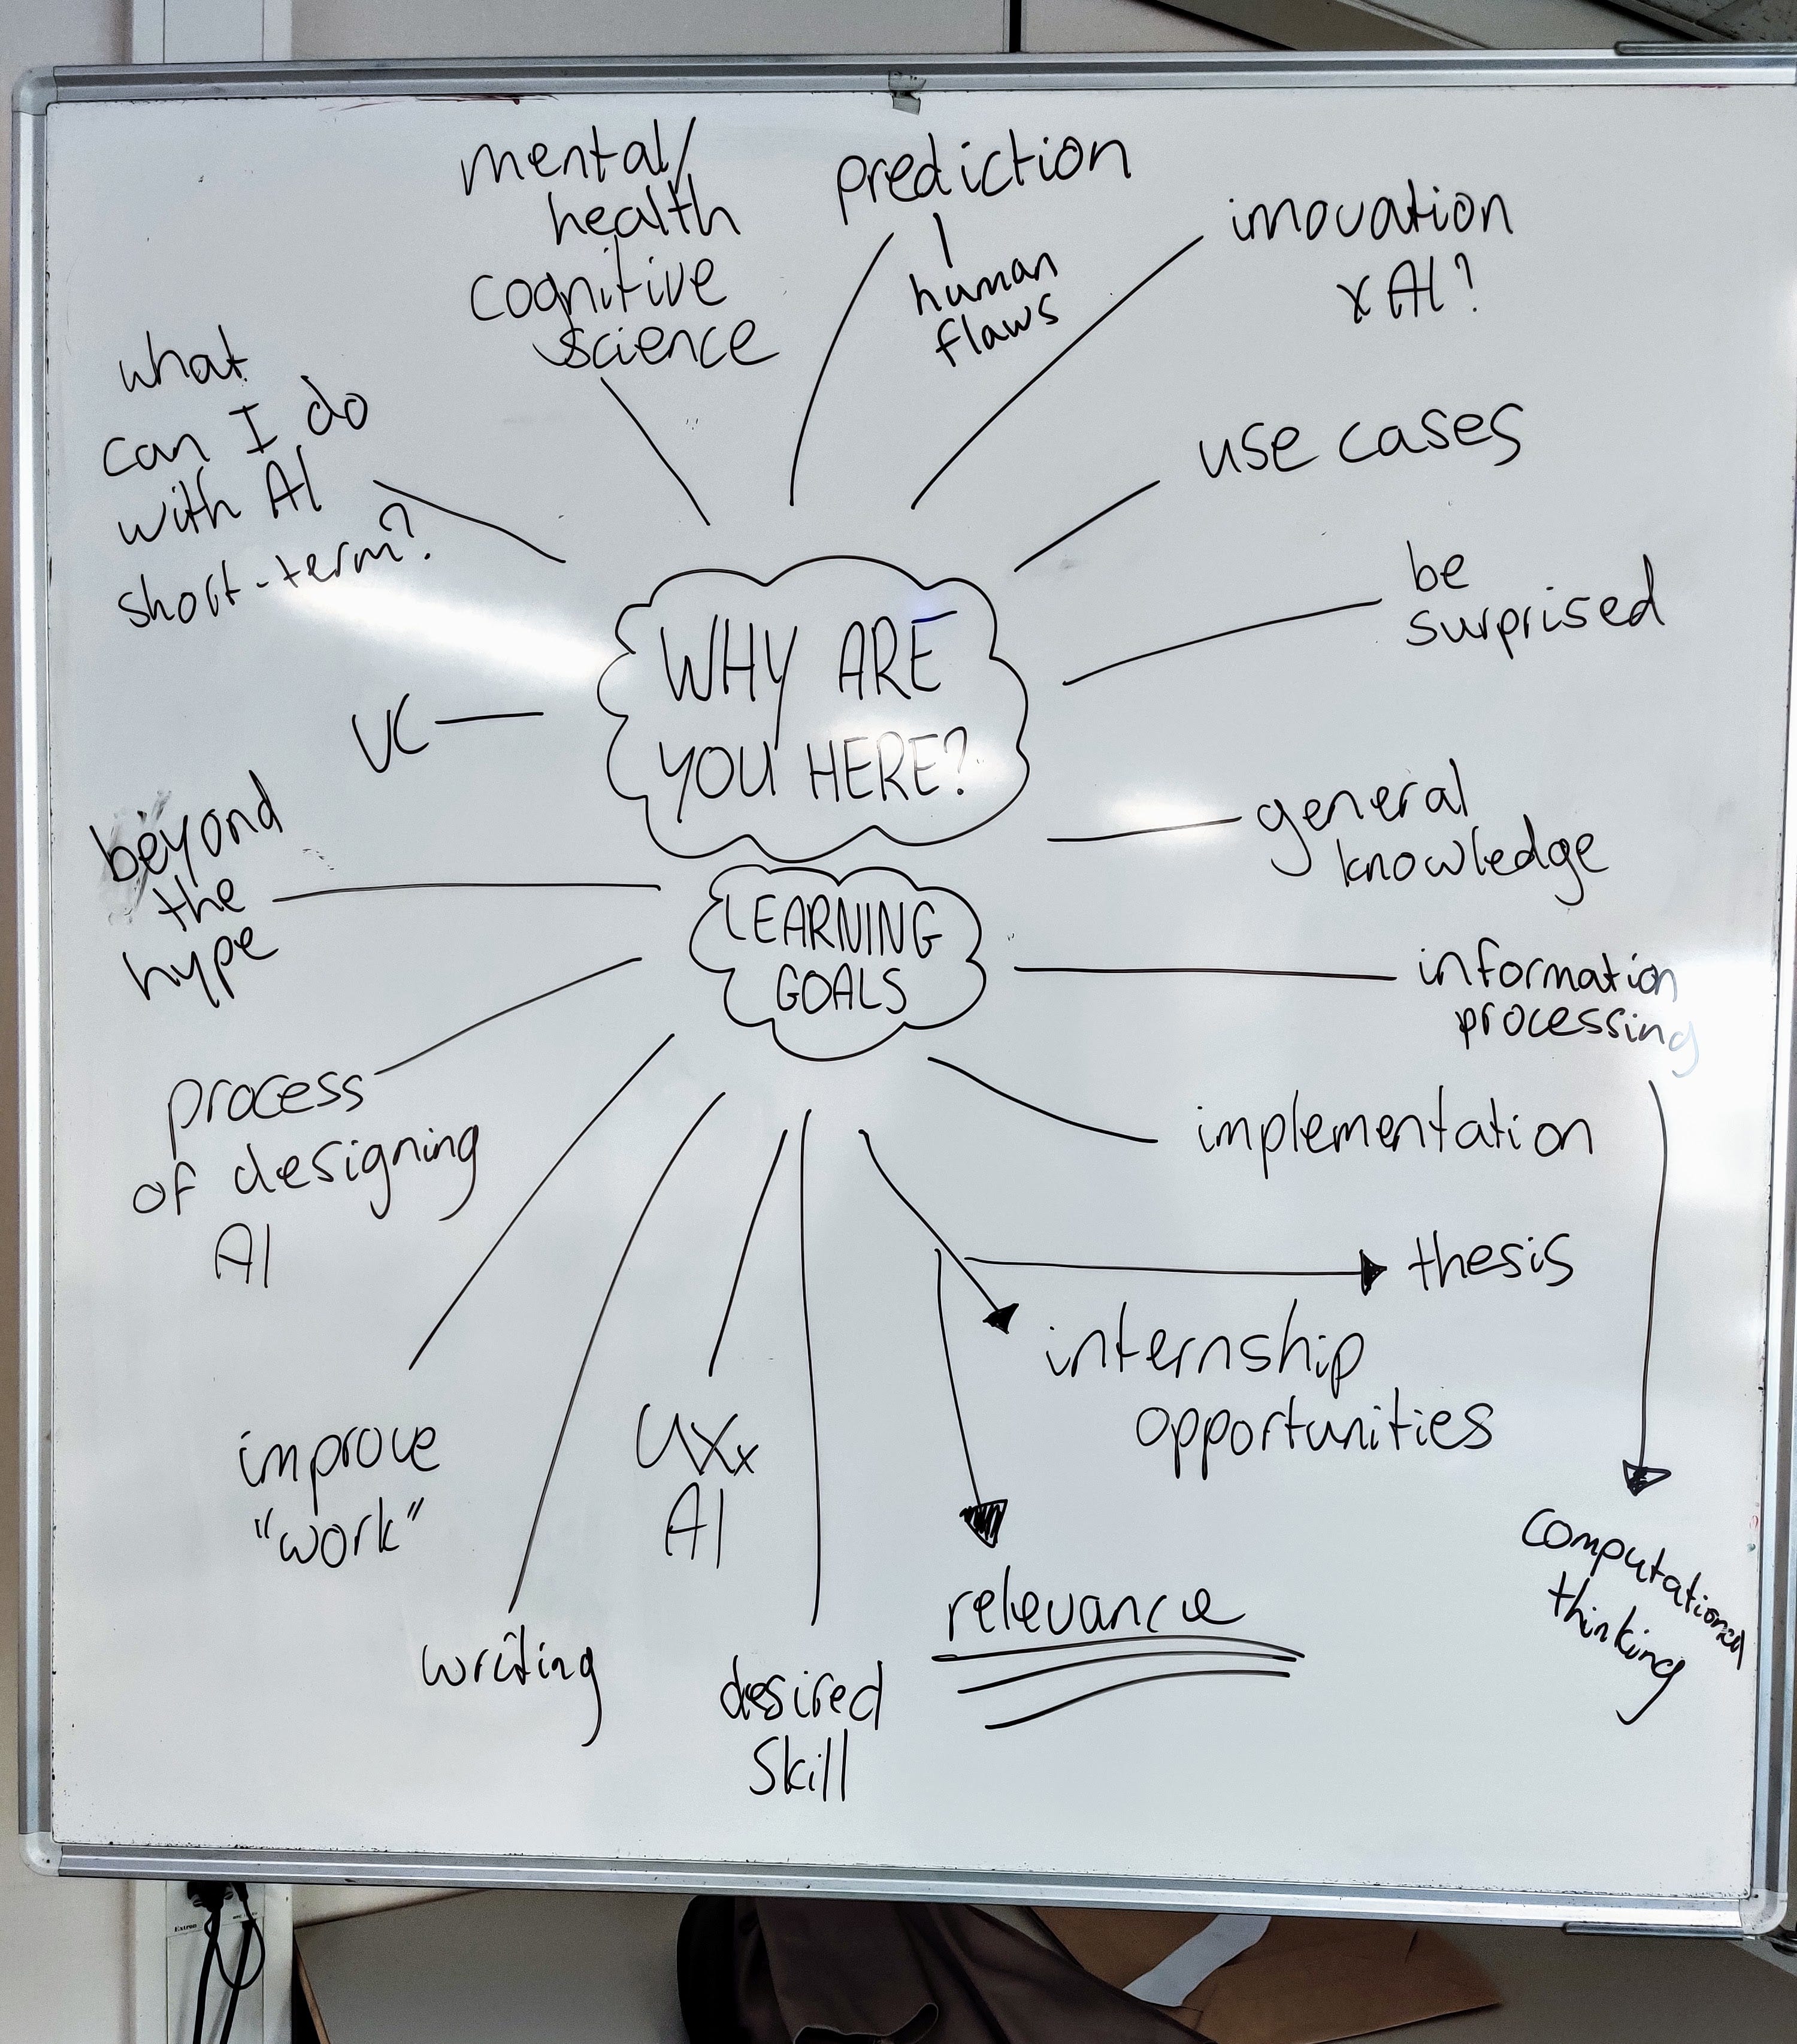 mental/
health
cognitive
science
prediction
human
flaws
inovation
x AI?
use cases
be
surprised
general
knowledge
information
processing
computational
thinking
implementation
thesis
internship
opportunities
relevance
desired
skill
UX x
AI
writing
improve
"work"
process
of designing
AI
beyond
the
hype
VC
what
can I do
with AI
short-term?
WHY ARE
YOU HERE?
LEARNING
GOALS
Extron